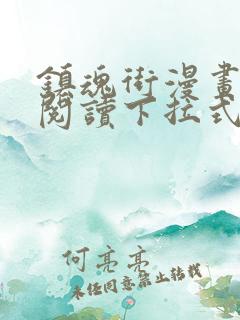 鎮魂街漫畫
閱讀下拉式
何亮亮
未经同意禁止转载